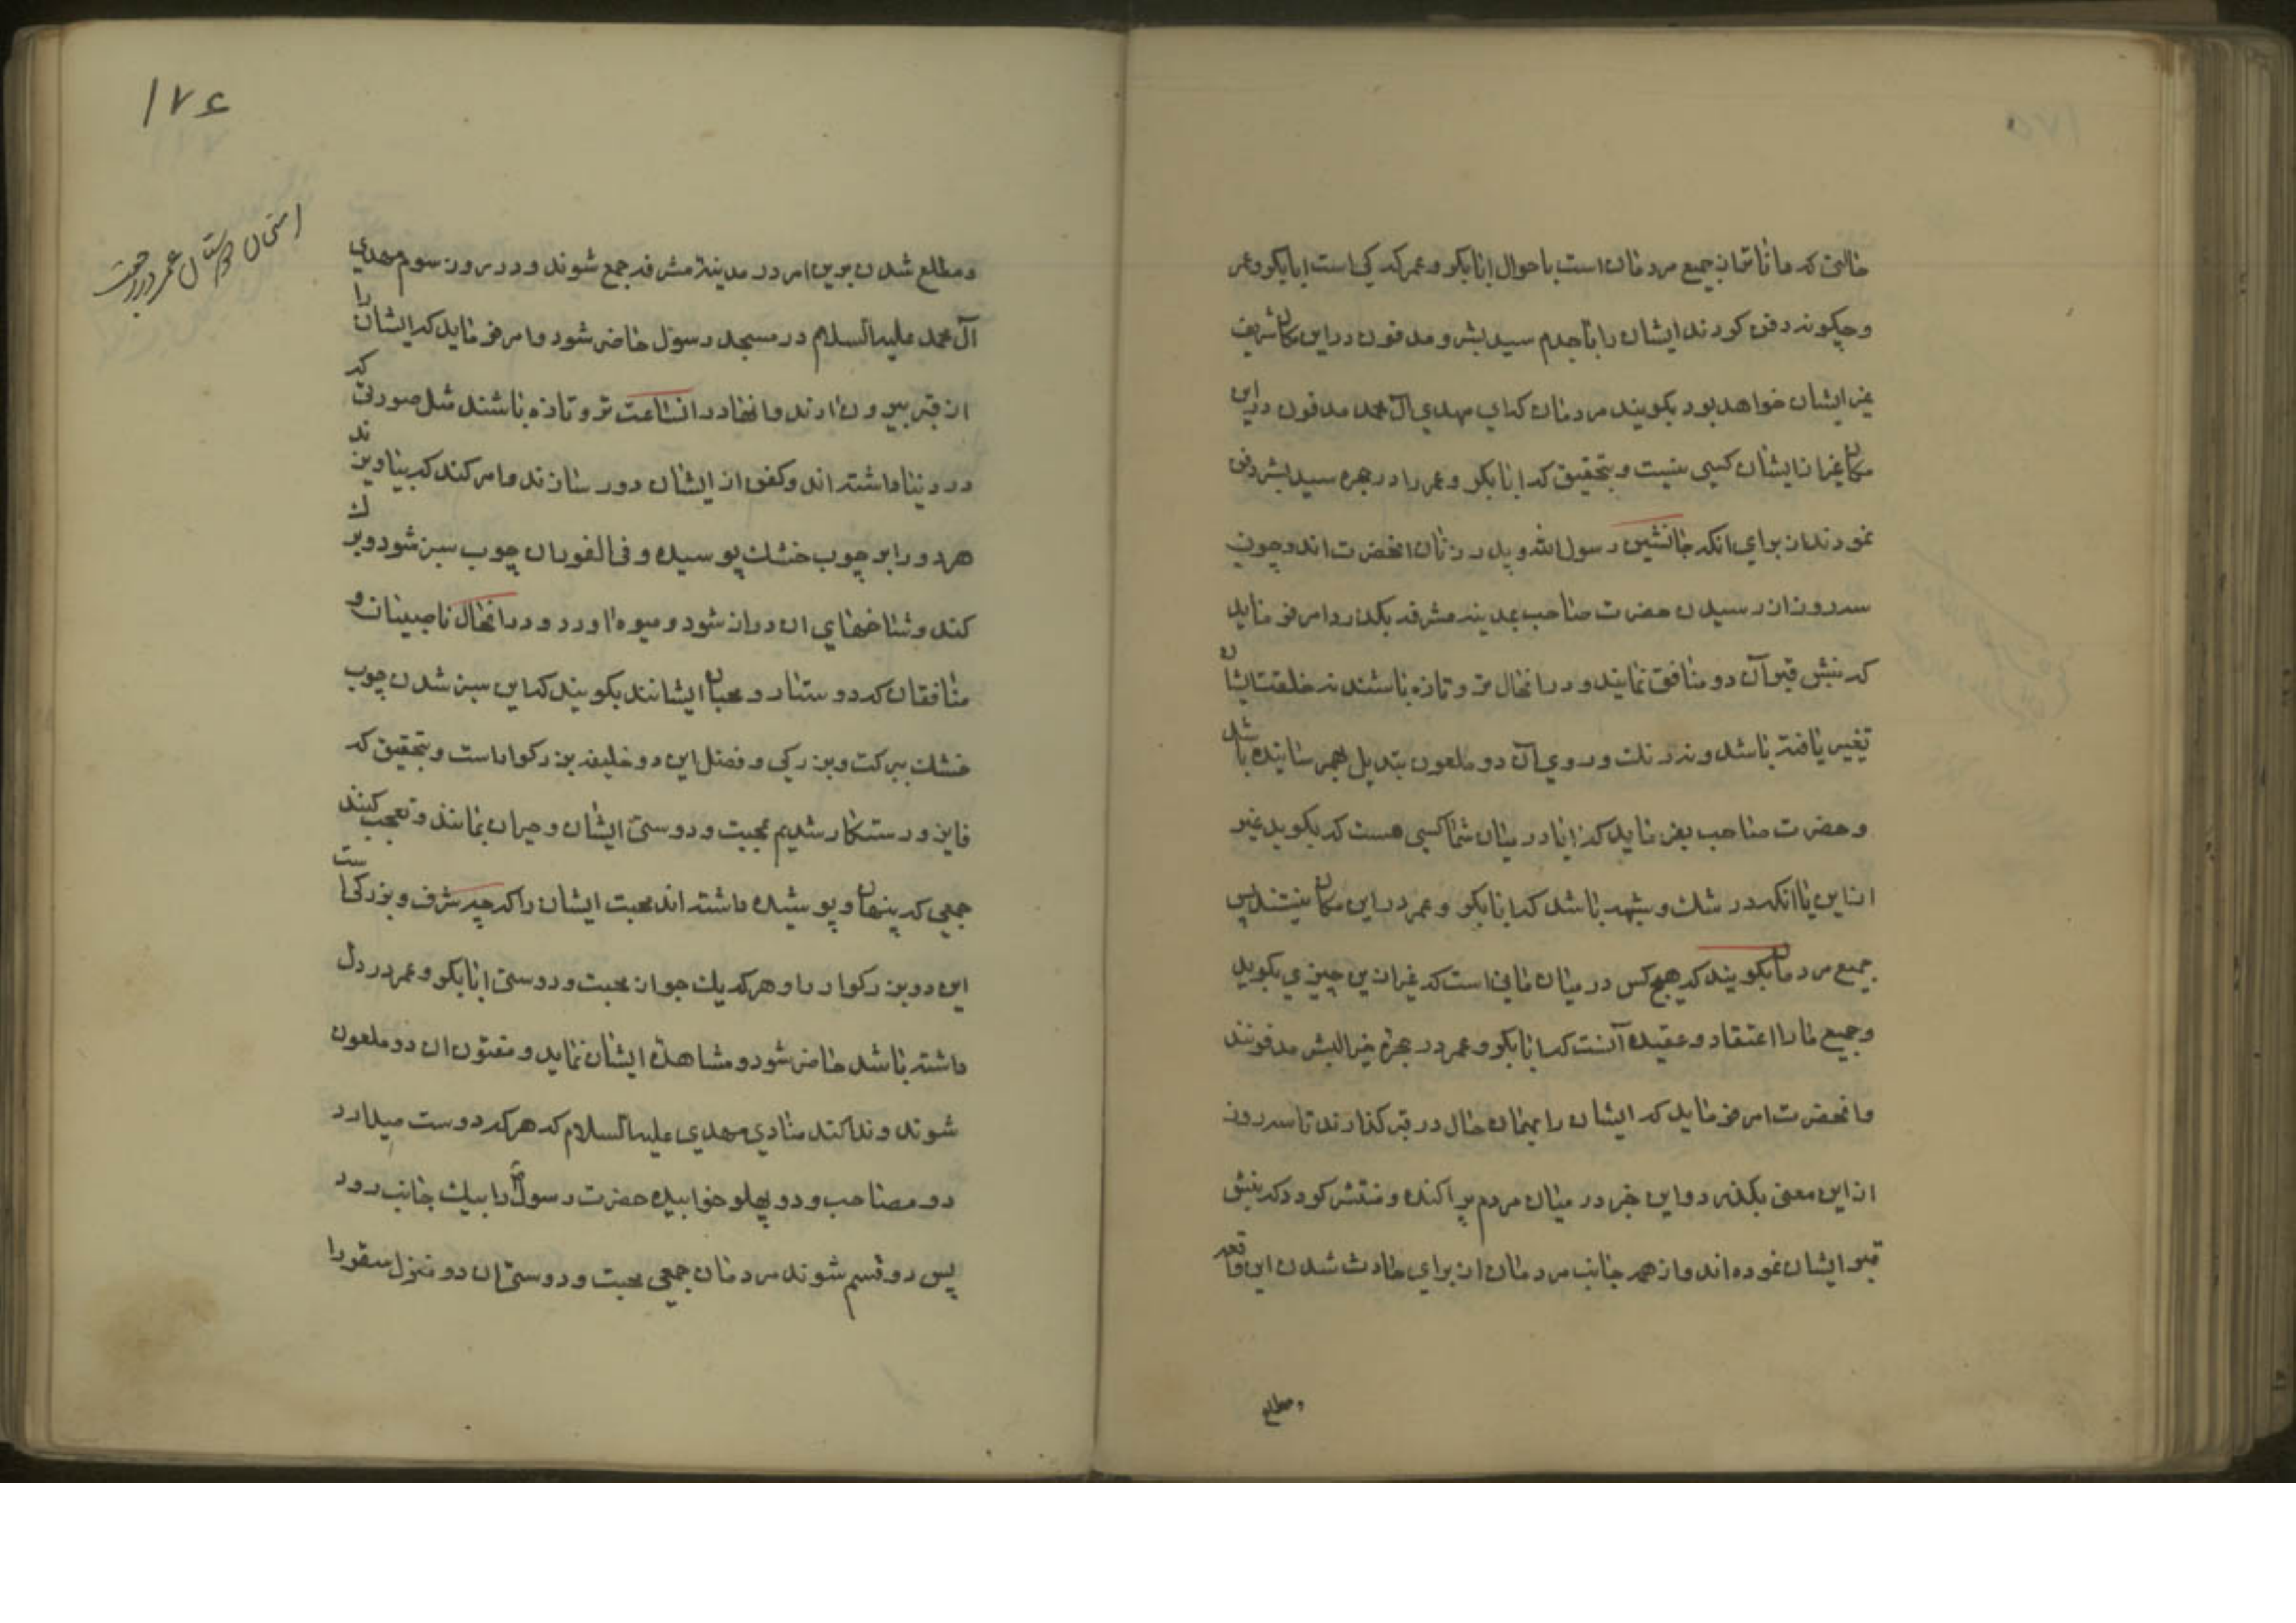 حالتی که داناتران جمیع مردمان است باحوال ابابکر و عمر که کی است ابابکر و عمر
و چگونه دفن کردند ایشان را با جدم سید بشر و مدفون در این مکان شریف
غیر ایشان خواهد بود بگویند مردمان که ای مهدی آل محمد مدفون در این
مکان غیر از ایشان کسی نیست و بتحقیق که ابابکر و عمر را در حجره سید بشر دفن
نمودند از برای آنکه جانشین رسول الله و پدر زنان آنحضرت اند و چون
سه روز از رسیدن حضرت صاحب بمدینه مشرفه بگذرد امر فرماید
که نبش قبر آن دو منافق نمایند و در آنحال تر و تازه باشند نه خلقت ایشان
تغییر یافته باشد و نه رنگ و روی آن دو ملعون تبدیل بهم رسانیده باشد
و حضرت صاحب بفرماید که آیا در میان شما کسی هست که بگوید غیر
از این یا آنکه در شک و شبهه باشد که ابابکر و عمر در این مکان نیستند پس
جمیع مردمان بگویند که هیچ کس در میان ما نی است که غیر از این چیزی بگوید
و جمیع ما را اعتقاد و عقیده آنست که ابابکر و عمر در حجره خیر البشر مدفونند
و آنحضرت امر فرماید که ایشان را بهمان حال در قبر گذارند تا سه روز
از این معنی بگذرد و این خبر در میان مردم پراکنده و منتشر گردد که نبش
قبر ایشان نموده اند و از همه جانب مردمان از برای حادث شدن این واقعه
و مطلع
۱۷۶
امتحان دوستان عمر در رجعت
و مطلع شدن برین امر در مدینه مشرفه جمع شوند و در روز سوم مهدی
آل محمد علیه السلام در مسجد رسول حاضر شود و امر فرماید که ایشان را
از قبر بیرون آرند و آنها در انساعت تر و تازه باشند مثل صورتی که
در دنیا داشته اند و کفن از ایشان دور سازند و امر کند که بیاویزند
هر دو را بر چوب خشک پوسیده و فی الفور آن چوب سبز شود و برک
کند و شاخهای آن دراز شود و میوه آورد و در آنحال ناصبیان و
منافقان که دوستدار و محبان ایشانند بگویند که این سبز شدن چوب
خشک ببرکت و بزرکی و فضل این دو خلیفه بزرکوار است و بتحقیق که
فایز و رستکار شدیم بمحبت و دوستی ایشان و حیران بمانند و تعجب کنند
جمعی که پنهان و پوشیده داشته اند محبت ایشان را که چه شرف و بزرکی است
این دو بزرکوار را و هر که یک جو از محبت و دوستی ابابکر و عمر در دل
داشته باشد حاضر شود و مشاهدۀ ایشان نماید و مفتون آن دو ملعون
شوند و ندا کند منادی مهدی علیه السلام که هر که دوست میدارد
دو مصاحب و دو پهلو خوابیده حضرت رسول را بیک جانب رود
پس دو قسم شوند مردمان جمعی محبت و دوستی آن دو منزل سقر را